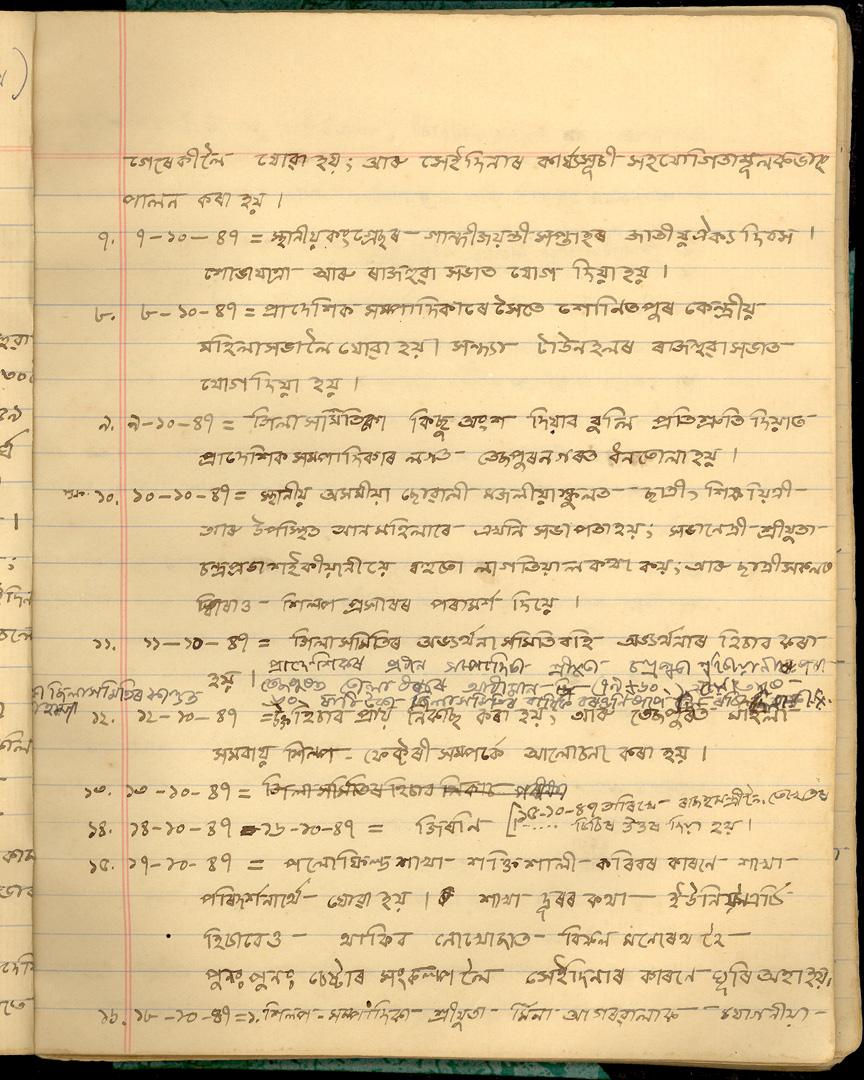 যোৱা হয়; আৰু সেইদিনাৰ কাৰ্য্যসূচী সহযোগিতামূলকভাৱে
পালন কৰা হয়।
৭. ৭-১০-৪৭ = স্থানীয় কংগ্ৰেছৰ গান্ধীজয়ন্তী সপ্তাহৰ জাতীয় ঐক্য দিবস।
শোভাযাত্ৰা আৰু ৰাজহুৱা সভাত যোগ দিয়া হয়।
৮. ৮-১০-৪৭ = প্ৰাদেশিক সম্পাদিকাৰে সৈতে শোণিতপুৰ কেন্দ্ৰীয়
মহিলা সভালৈ যোৱা হয়। সন্ধ্যা টাউনহলৰ ৰাজহুৱা সভাত
যোগ দিয়া হয়।
৯. ৯-১০-৪৭ = জিলা সমিতিক কিছু অংশ দিয়াব বুলি প্ৰতিশ্ৰুতি দিয়াত
প্ৰাদেশিক সম্পাদিকাৰ লগত তেজপুৰ নগৰত ধন তোলা হয়।
১০. ১০-১০-৪৭ = স্থানীয় অসমীয়া ছোৱালী মজলীয়া স্কুলত ছাত্ৰী, শিক্ষয়িত্ৰী
আৰু উপস্থিত আন মহিলাৰে এখনি সভা পতা হয়; সভানেত্ৰী শ্ৰীযুতা
চন্দ্ৰপ্ৰভা শইকীয়ানীয়ে লাগতিয়াল কথা কয়; আৰু ছাত্ৰী সকলত
শিল্প প্ৰসাৰৰ পৰামৰ্শ দিয়ে।
১১. ১১-১০-৪৭ = জিলা সমিতিৰ অভ্যৰ্থনা সমিতি বাহি অভ্যৰ্থনাৰ হিচাব কৰা
হয়। প্ৰাদেশিকৰ সম্পাদিকা শ্ৰীযুতা
জিলা সমিতিৰ
১২. ১২-১০-৪৭ = হিচাব প্ৰায় নিকাছ কৰা হয়; আৰু তেজপুৰত মহিলা
সমবায় শিল্প - ফেক্টৰী সম্পৰ্কে আলোচনা কৰা হয়।
১৩. ১৩-১০-৪৭ = জিলা সমিতিৰ হিচাব নিকাচ
১৪. ১৪-১০-৪৭ - ১৬-১০-৪৭ = জিৰণি [১৫-১০-৪৭ তাৰিখে
চিঠিৰ উত্তৰ দিয়া হয়।
১৫. ১৭-১০-৪৭ = পলোফিল্ড শাখা শক্তিশালী কৰিবৰ কাৰণে শাখা
পৰিদৰ্শনাৰ্থে যোৱা হয়। শাখা দূৰৰ কথা ইউনিয়ন
হিচাবেও থাকিব নোখোজাত বিফল মনোৰথ হৈ
পুনঃ পুনঃ চেষ্টাৰ সংকল্প লৈ সেইদিনাৰ কাৰণে ঘূৰি অহা হয়।
১৬. ১৮-১০-৪৭ = ১. শিল্প-সম্পাদিকা শ্ৰীযুতা মিনা আগৰৱালাক